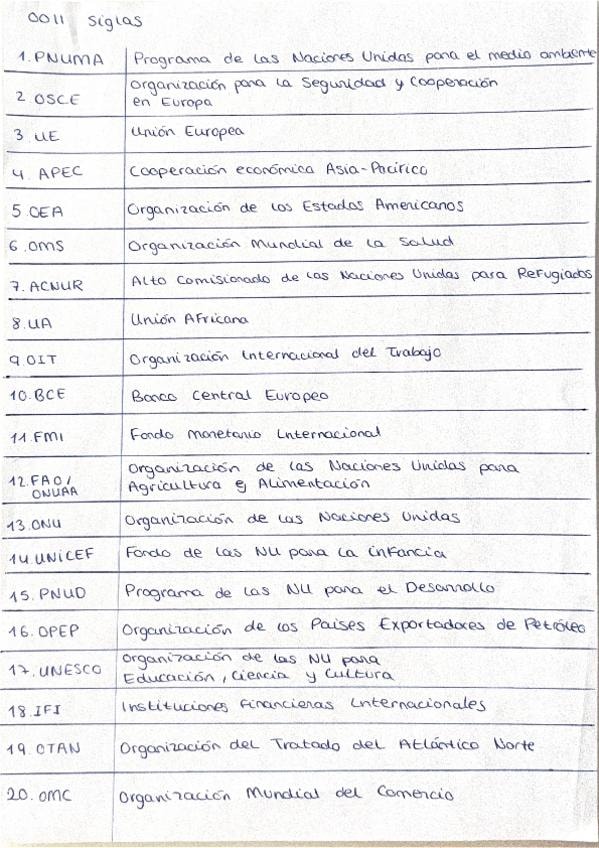 OOII siglas
1. PNUMA Programa de las Naciones Unidas para el medio ambiente
2. OSCE Organización para la Seguridad y Cooperación
en Europa
3. UE Unión Europea
4. APEC Cooperación económica Asia-Pacífico
5. OEA Organización de los Estados Americanos
6. OMS Organización Mundial de la Salud
7. ACNUR Alto Comisionado de las Naciones Unidas para Refugiados
8. UA Unión Africana
9. OIT Organización Internacional del Trabajo
10. BCE Banco Central Europeo
11. FMI Fondo Monetario Internacional
12. FAO/ Organización de las Naciones Unidas para
ONUAA Agricultura y Alimentación
13. ONU Organización de las Naciones Unidas
14. UNICEF Fondo de las NU para la infancia
15. PNUD Programa de las NU para el Desarrollo
16. OPEP Organización de los Países Exportadores de Petróleo
17. UNESCO Organización de las NU para
Educación, Ciencia y Cultura
18. IFI Instituciones Financieras Internacionales
19. OTAN Organización del Tratado del Atlántico Norte
20. OMC Organización Mundial del Comercio